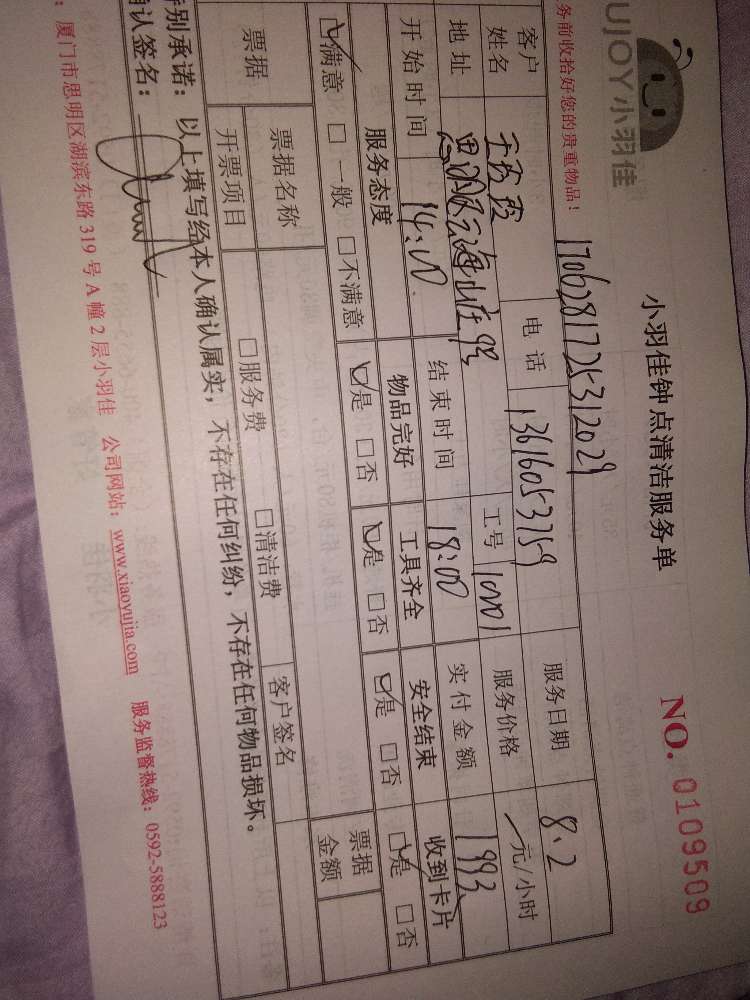 UJOY小羽佳
小羽佳钟点清洁服务单
NO. 0109509
务前收拾好您的贵重物品！
1706281725312029
客户姓名 电话 13616053759 服务日期 8.2
地址 工号 10001 服务价格 元/小时
开始时间 14:00 结束时间 18:00 实付金额 1993
服务态度 物品完好 工具齐全 安全结束 收到卡片
☑满意 □一般 □不满意 ☑是 □否 ☑是 □否 ☑是 □否 ☑是 □否
票据 票据名称 客户签名 票据金额
开票项目 □服务费 □清洁费
特别承诺：以上填写经本人确认属实，不存在任何纠纷，不存在任何物品损坏。
确认签名：
：厦门市思明区湖滨东路 319 号 A 幢 2 层小羽佳 公司网站：www.xiaoyujia.com 服务监督热线：0592-5888123